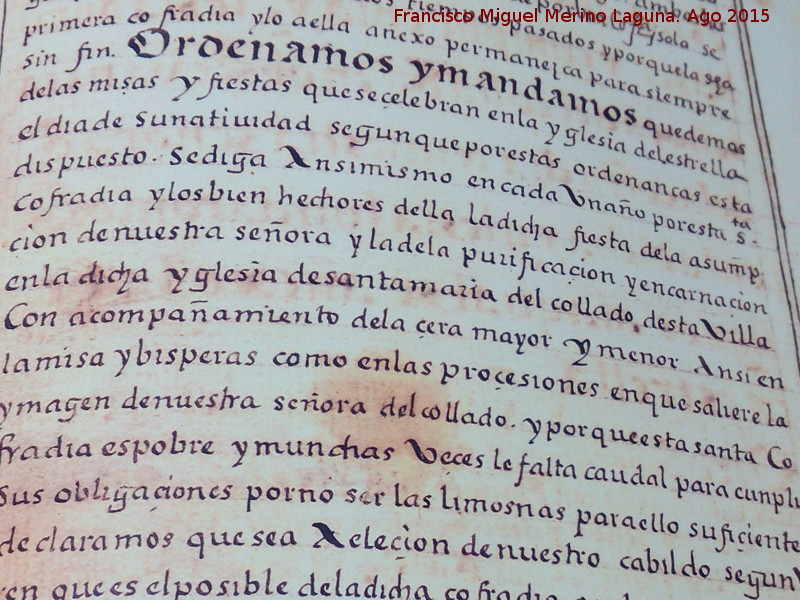 Francisco Miguel Merino Laguna. Ago 2015
tiempos pasados y porque la sea
primera cofradia ylo aella anexo permanezca para siempre
sin fin. Ordenamos ymandamos quedemas
delas misas y fiestas quesecelebran enla yglesia delestrella
eldiade sunatiuidad segunqueporestas ordenancas esta
dispuesto. sediga Ansimismo encada Vnaño poresta sta
cofradia ylosbien hechores della ladicha fiesta dela asump
cion denuestra señora yladela purificaçion yencarnaçion
enla dicha yglesia desantamaria del collado destaVilla
Con acompañamiento dela çera mayor y menor Ansi en
lamisa ybisperas como enlas proçesiones enque saliere la
ymagen denuestra señora delcollado. yporqueestasanta Co
fradia espobre ymunchas Veces lefalta caudal para cunplir
sus obligaçiones porno ser las limosnas paraello sufiçiente
declaramos quesea Xeleçion denuestro cabildo segun
en quees elposible deladicha cofradia